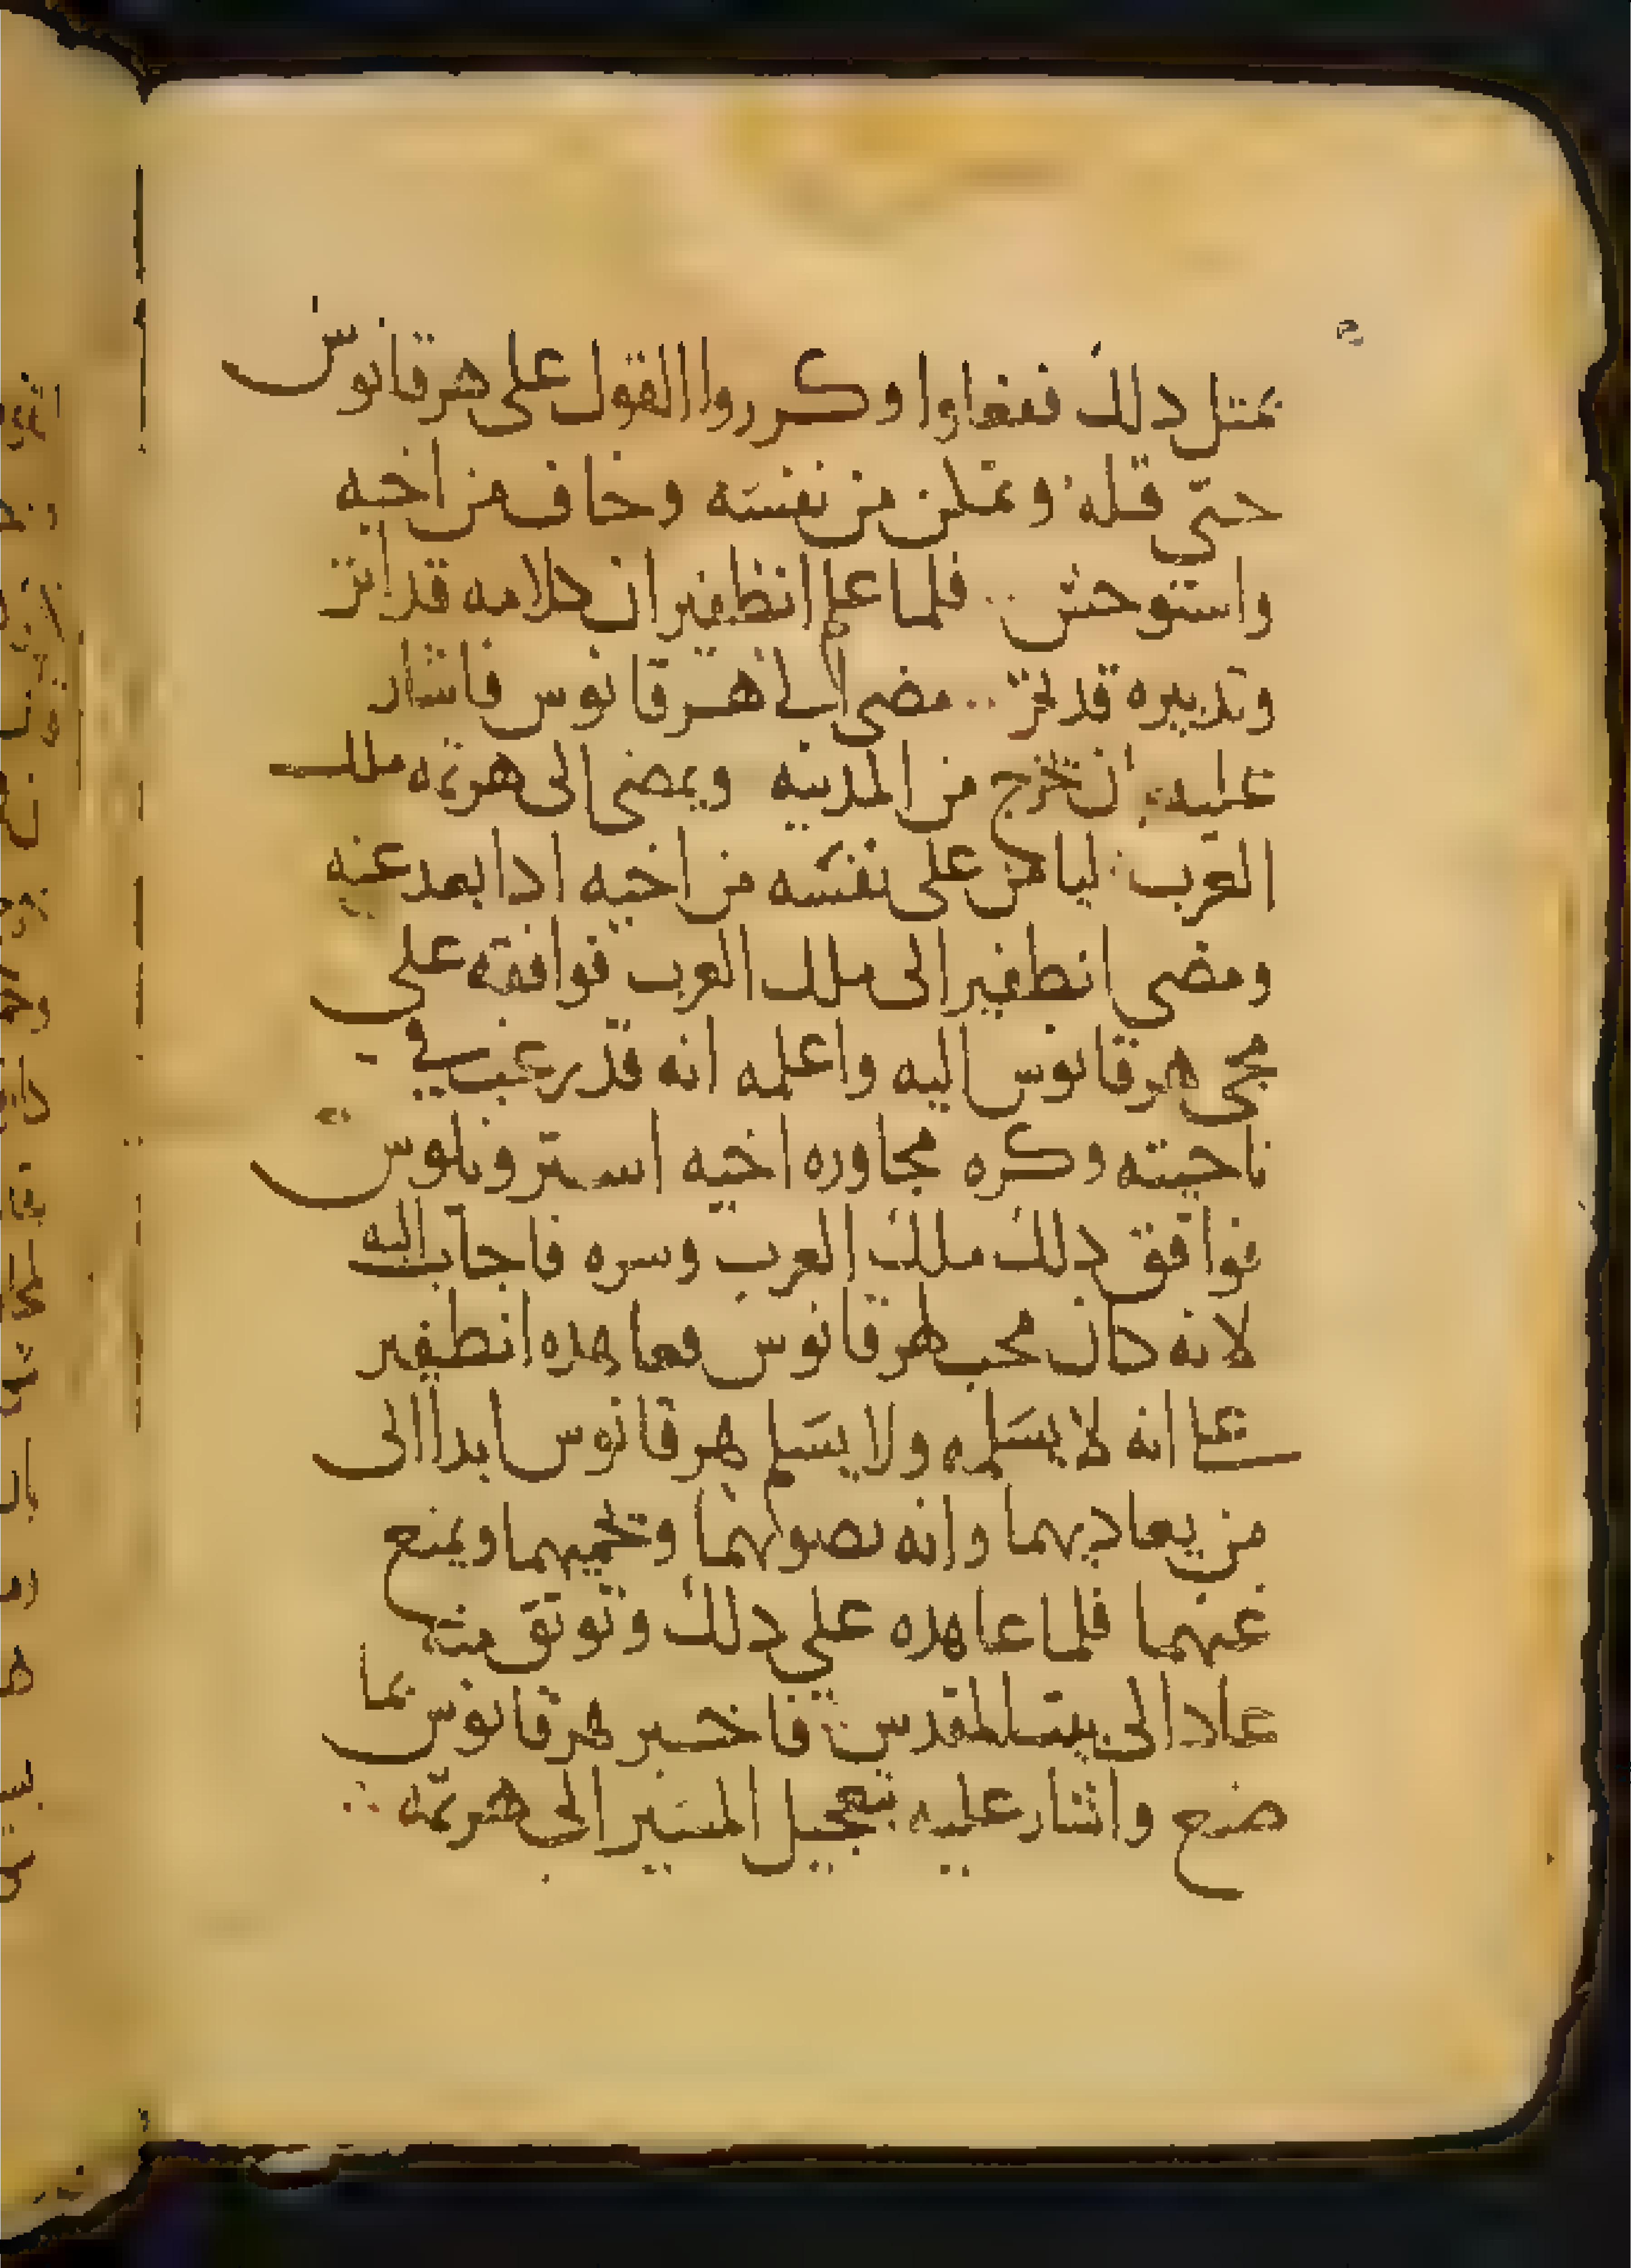 بمثل دلك ففعلوا وكرروا القول على هرقانوس
حتى قبله وتمكن من نفسه وخاف من اخيه
واستوحش .. فلما علم انطفير ان كلامه قد اثر
وتدبيره قد تم .. مضى الى هرقانوس فاشار
عليه ان يخرج من المدينه ويمضى الى هرتمه ملك
العرب ليامن على نفسه من اخيه ادا بعد عنه
ومضى انطفير الى ملك العرب فوافقه على
مجى هرقانوس اليه واعلمه انه قد رغب في
ناحيته وكره مجاوره اخيه استروبلوس
فوافق دلك ملك العرب وسره فاجاب اليه
لانه كان محب هرقانوس فعاهده انطفير
على انه لا يسلمه ولا يسلم هرقانوس ابدا الى
من يعاديهما وانه يصونهما ويحميهما ويمنع
عنهما فلما عاهده على دلك وتوثق منه
عاد الى بيت المقدس فاخبر هرقانوس بما
صنع واشار عليه بتعجيل المسير الى هرتمه ..